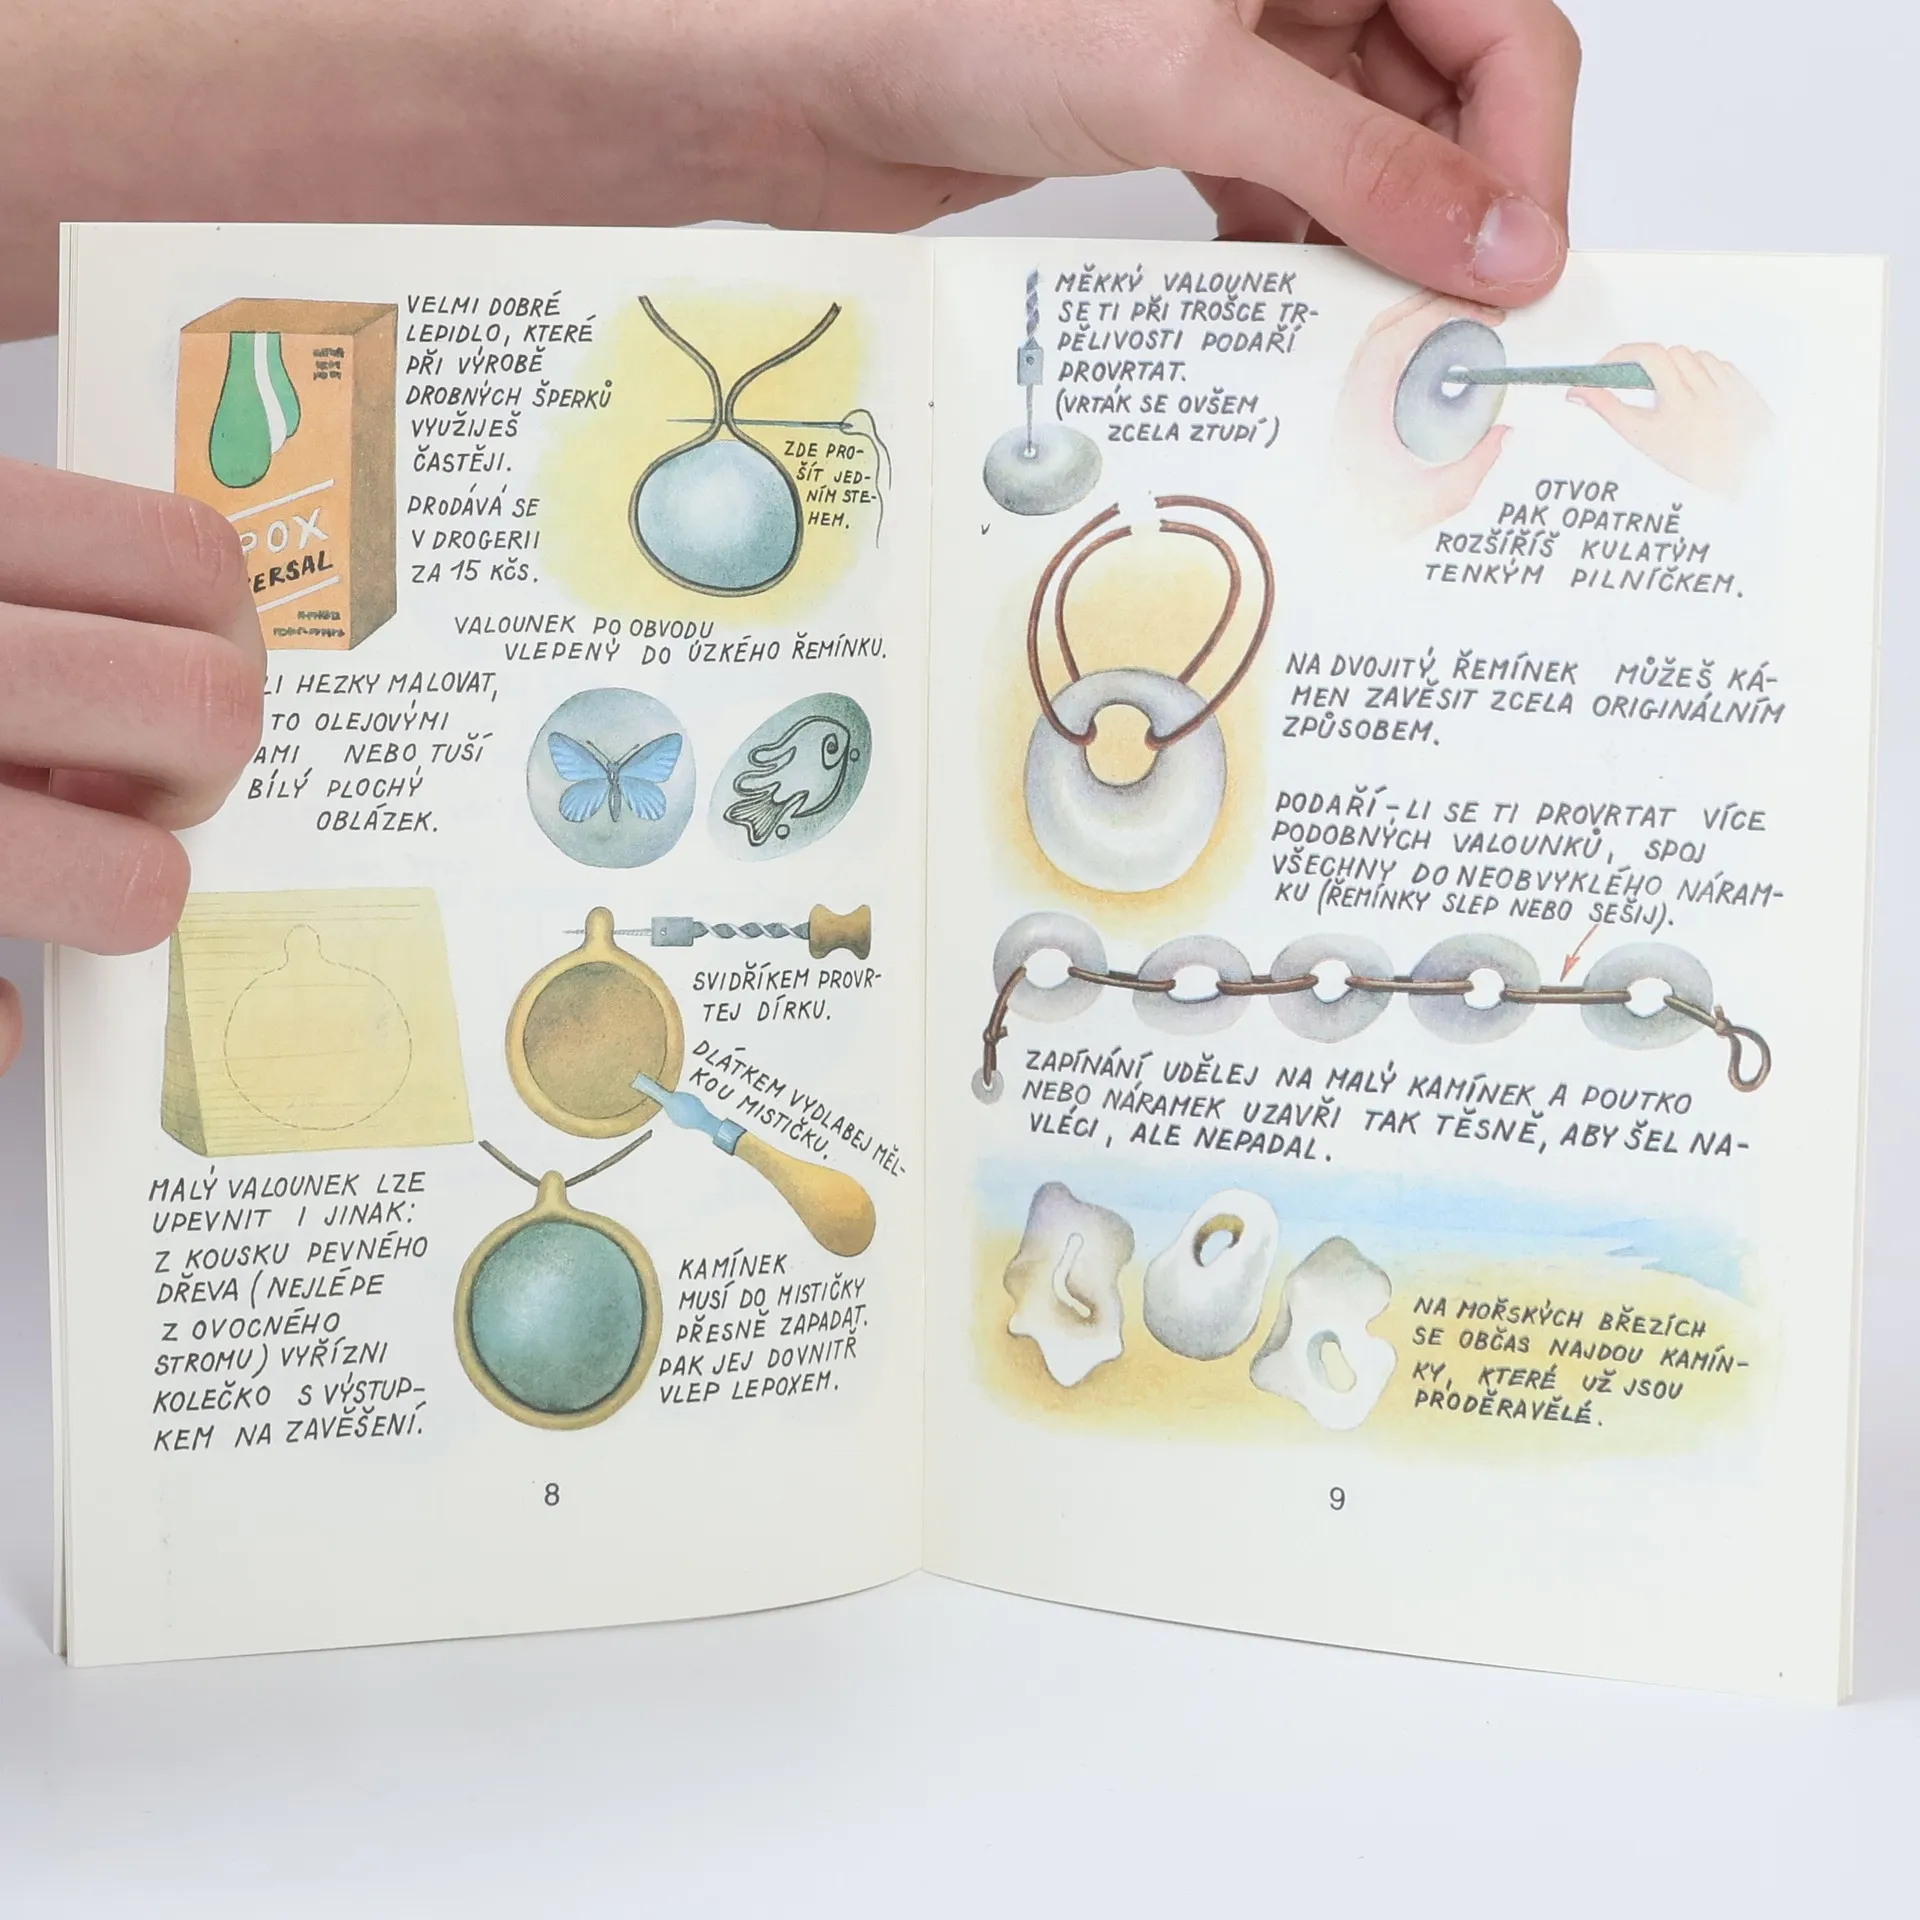 VELMI DOBRÉ
LEPIDLO, KTERÉ
PŘI VÝROBĚ
DROBNÝCH ŠPERKŮ
VYUŽIJEŠ
ČASTĚJI.
PRODÁVÁ SE
V DROGERII
ZA 15 KČS.
ZDE PRO-
ŠÍT JED-
NÍM STE-
HEM.
VALOUNEK PO OBVODU
VLEPENÝ DO ÚZKÉHO ŘEMÍNKU.
LI HEZKY MALOVAT,
TO OLEJOVÝMI
AMI NEBO TUŠÍ
BÍLÝ PLOCHÝ
OBLÁZEK.
SVIDŘÍKEM PROVR-
TEJ DÍRKU.
DLÁTKEM VYDLABEJ MĚL-
KOU MISTIČKU.
MALÝ VALOUNEK LZE
UPEVNIT I JINAK:
Z KOUSKU PEVNÉHO
DŘEVA (NEJLÉPE
Z OVOCNÉHO
STROMU) VYŘÍZNI
KOLEČKO S VÝSTUP-
KEM NA ZAVĚŠENÍ.
KAMÍNEK
MUSÍ DO MISTIČKY
PŘESNĚ ZAPADAT.
PAK JEJ DOVNITŘ
VLEP LEPOXEM.
8
MĚKKÝ VALOUNEK
SE TI PŘI TROŠCE TR-
PĚLIVOSTI PODAŘÍ
PROVRTAT.
(VRTÁK SE OVŠEM
ZCELA ZTUPÍ)
OTVOR
PAK OPATRNĚ
ROZŠÍŘÍŠ KULATÝM
TENKÝM PILNÍČKEM.
NA DVOJITÝ ŘEMÍNEK MŮŽEŠ KÁ-
MEN ZAVĚSIT ZCELA ORIGINÁLNÍM
ZPŮSOBEM.
PODAŘÍ-LI SE TI PROVRTAT VÍCE
PODOBNÝCH VALOUNKŮ, SPOJ
VŠECHNY DO NEOBVYKLÉHO NÁRAM-
KU (ŘEMÍNKY SLEP NEBO SEŠIJ).
ZAPÍNÁNÍ UDĚLEJ NA MALÝ KAMÍNEK A POUTKO
NEBO NÁRAMEK UZAVŘI TAK TĚSNĚ, ABY ŠEL NA-
VLÉCI, ALE NEPADAL.
NA MOŘSKÝCH BŘEZÍCH
SE OBČAS NAJDOU KAMÍN-
KY, KTERÉ UŽ JSOU
PRODĚRAVĚLÉ.
9